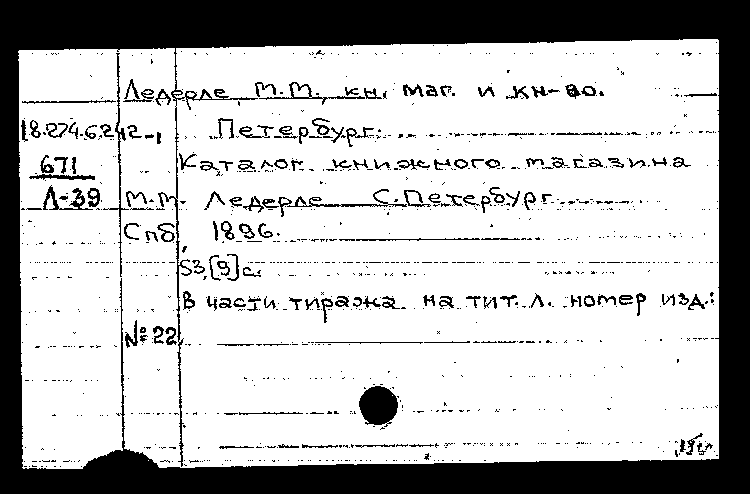 Ледерле, М.М., кн. маг. и кн-во.
18.274.6.242-1 Петербург.
671 Каталог книжного магазина
Л-39 М.М. Ледерле С.Петербург
Спб, 1896.
53,[9]с.
В части тиража на тит. л. номер изд.:
№ 22.